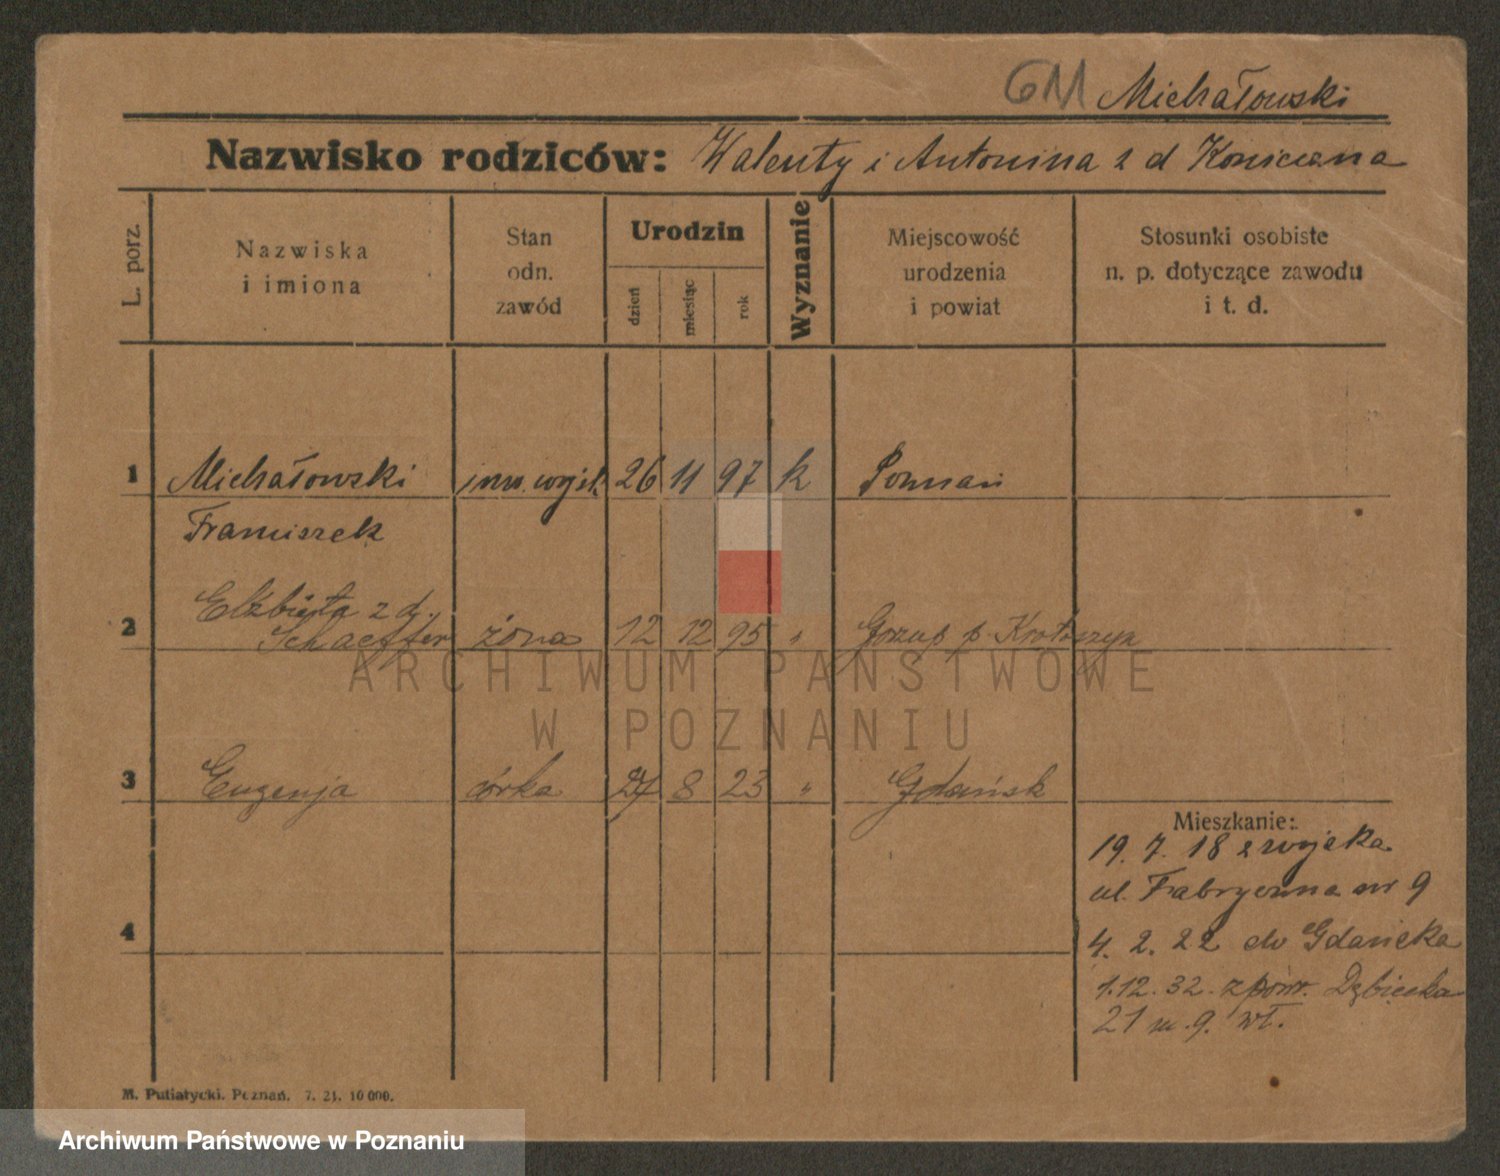 GM Michałowski
Nazwisko rodziców: Walenty i Antonina z d Konieczna
L. porz.
Nazwiska
i imiona
Stan
odn.
zawód
Urodzin
dzień
miesiąc
rok
Wyznanie
Miejscowość
urodzenia
i powiat
Stosunki osobiste
n. p. dotyczące zawodu
i t. d.
1 Michałowski inw. wojsk 26 11 97 k Poznań
Franciszek
Elżbieta z d.
2 Schaeffer żona 12 12 95 " Gorzup p. Krotoszyn
ARCHIWUM PAŃSTWOWE
W POZNANIU
3 Eugenja córka 27 8 23 " Gdańsk
Mieszkanie:
19. 7. 18 z wojska
ul. Fabryczna nr 9
4
4. 2. 22 do Gdańska
1.12.32. z pow. Dąbiecka
21 m. 9. wł.
M. Putiatycki. Poznań. 7. 21. 10 000.
Archiwum Państwowe w Poznaniu